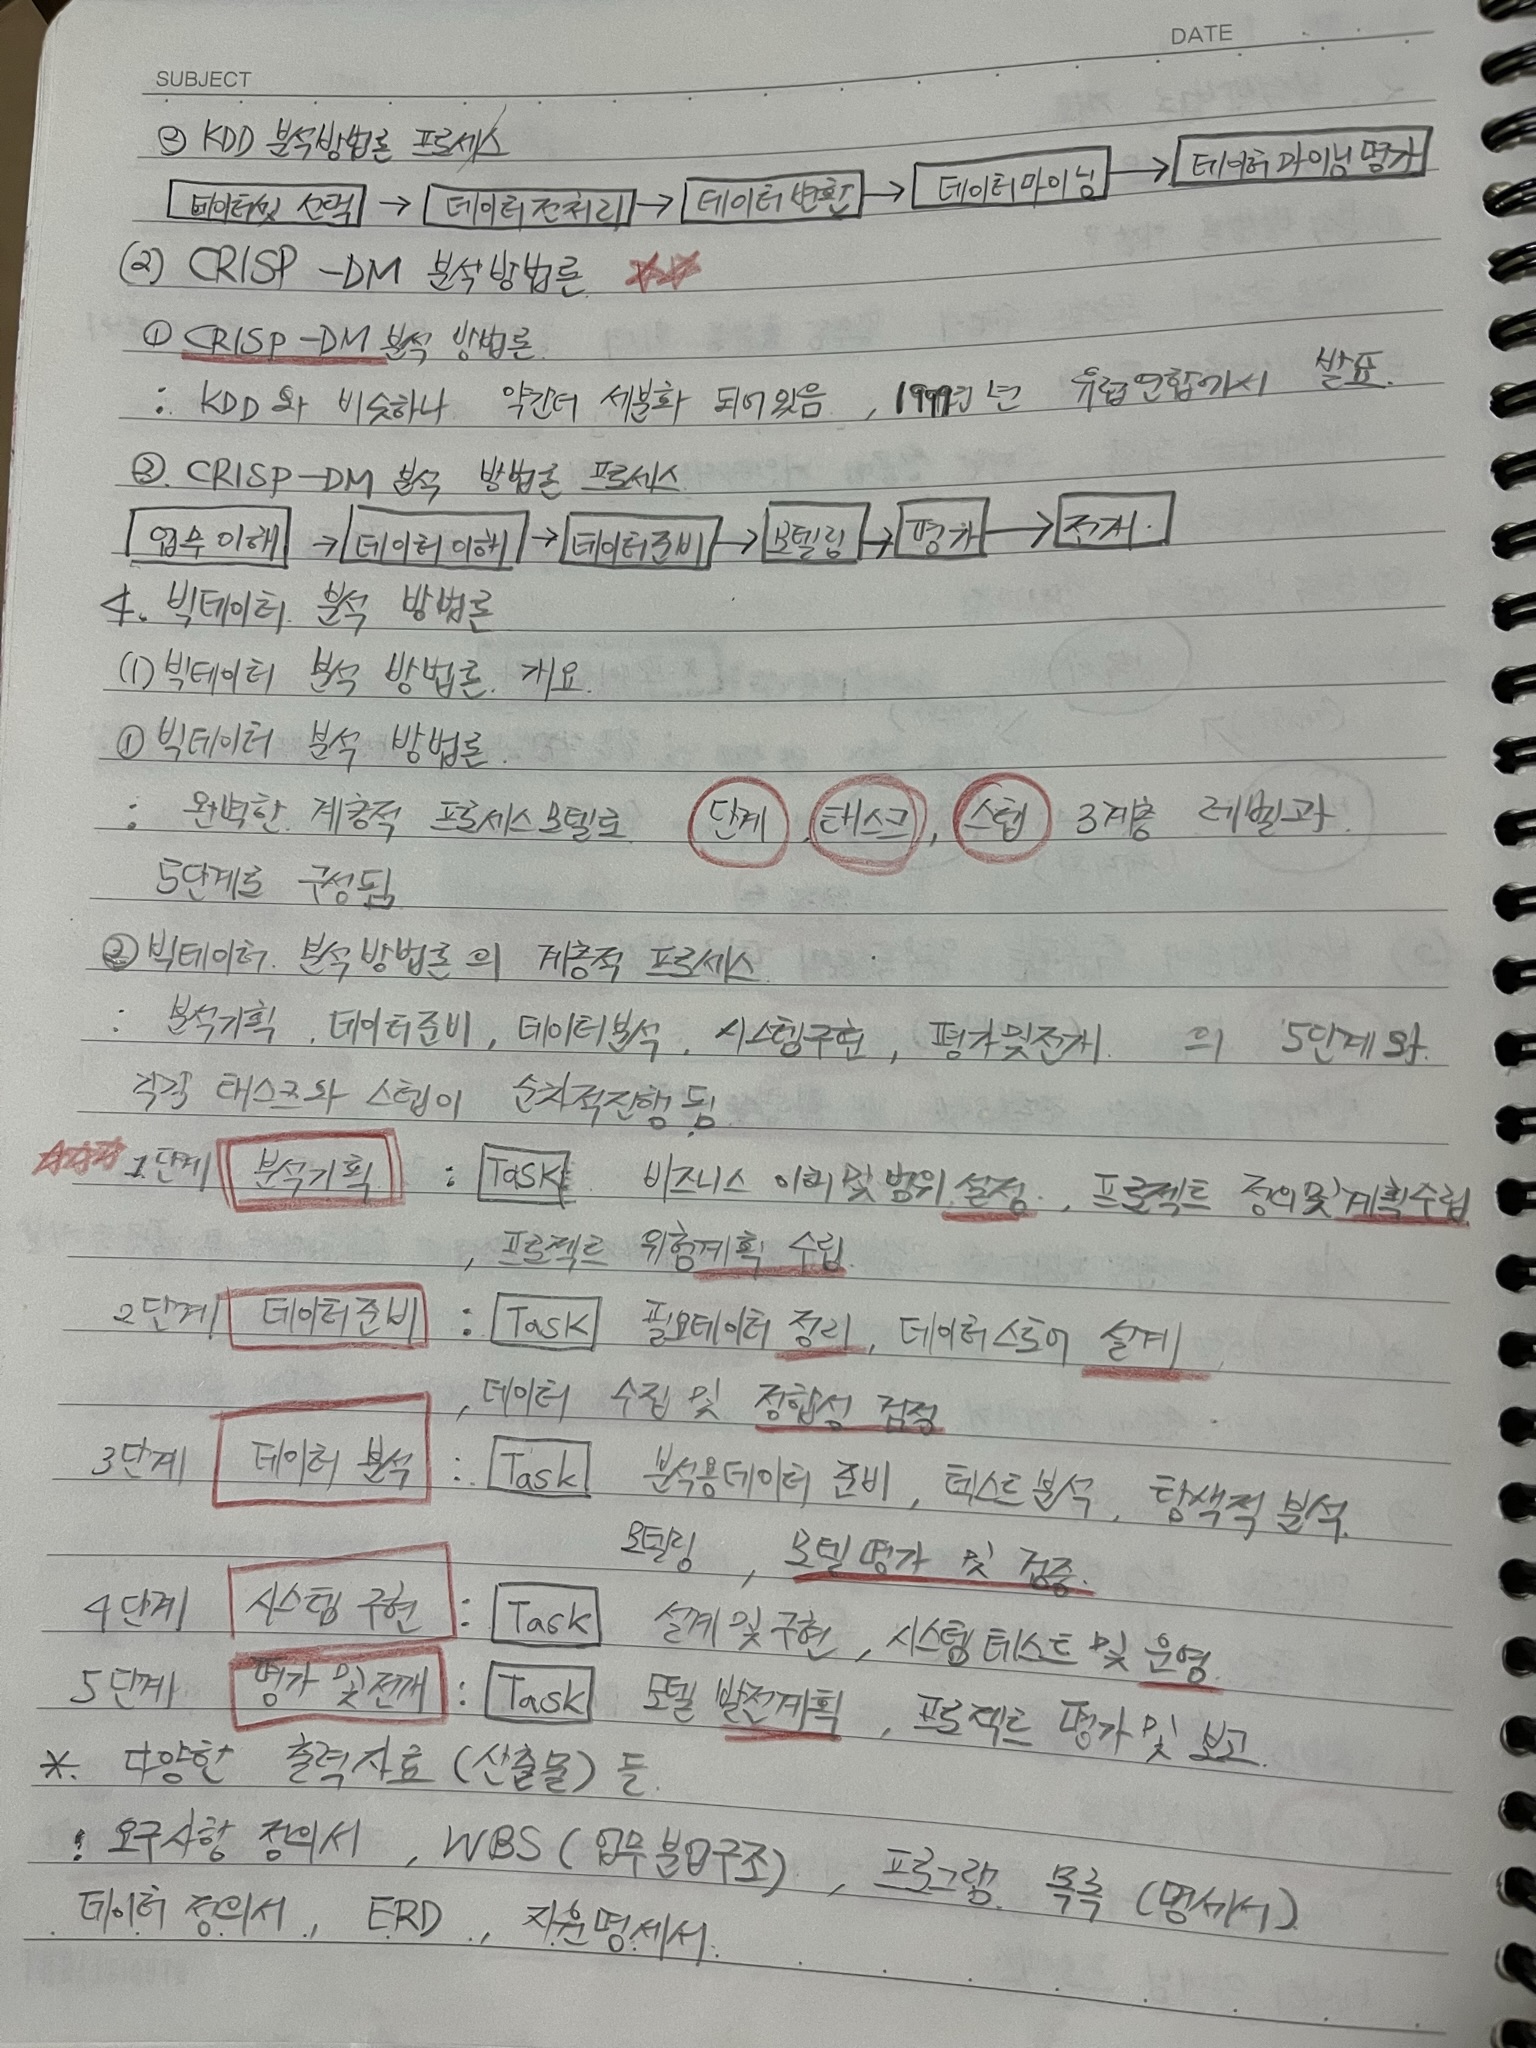 SUBJECT
DATE
③ KDD 분석방법론 프로세스
데이터셋 선택 → 데이터 전처리 → 데이터 변환 → 데이터마이닝 → 데이터마이닝 평가
(2) CRISP-DM 분석방법론 ☆☆
① CRISP-DM 분석 방법론.
: KDD와 비슷하나 약간더 세분화 되어있음, 1999년 유럽연합에서 발표.
②. CRISP-DM 분석 방법론 프로세스.
업무 이해 → 데이터 이해 → 데이터준비 → 모델링 → 평가 → 전개.
4. 빅데이터 분석 방법론
(1) 빅데이터 분석 방법론. 개요.
① 빅데이터 분석 방법론.
: 완벽한 계층적 프로세스모델로 단계, 태스크, 스텝 3계층 레벨과
5단계로 구성됨.
② 빅데이터 분석방법론의 계층적 프로세스.
: 분석기획, 데이터준비, 데이터분석, 시스템구현, 평가및전개. 의 5단계와
각각 태스크와 스텝이 순차적진행 됨.
☆☆☆ 1단계 분석기획 : Task 비즈니스 이해 및 범위 설정, 프로젝트 정의및 계획수립
, 프로젝트 위험계획 수립.
2단계 데이터준비 : Task 필요데이터 정리, 데이터스토어 설계
, 데이터 수집 및 정합성 점검
3단계 데이터 분석 : Task 분석용데이터 준비, 텍스트분석, 탐색적 분석.
모델링, 모델평가 및 검증.
4단계 시스템 구현 : Task 설계 및 구현, 시스템 테스트 및 운영.
5단계 평가 및 전개 : Task 모델 발전계획, 프로젝트 평가 및 보고.
*. 다양한 출력자료 (산출물) 들.
: 요구사항 정의서, WBS (업무분업구조), 프로그램 목록 (명세서)
데이터 정의서, ERD, 지원명세서.